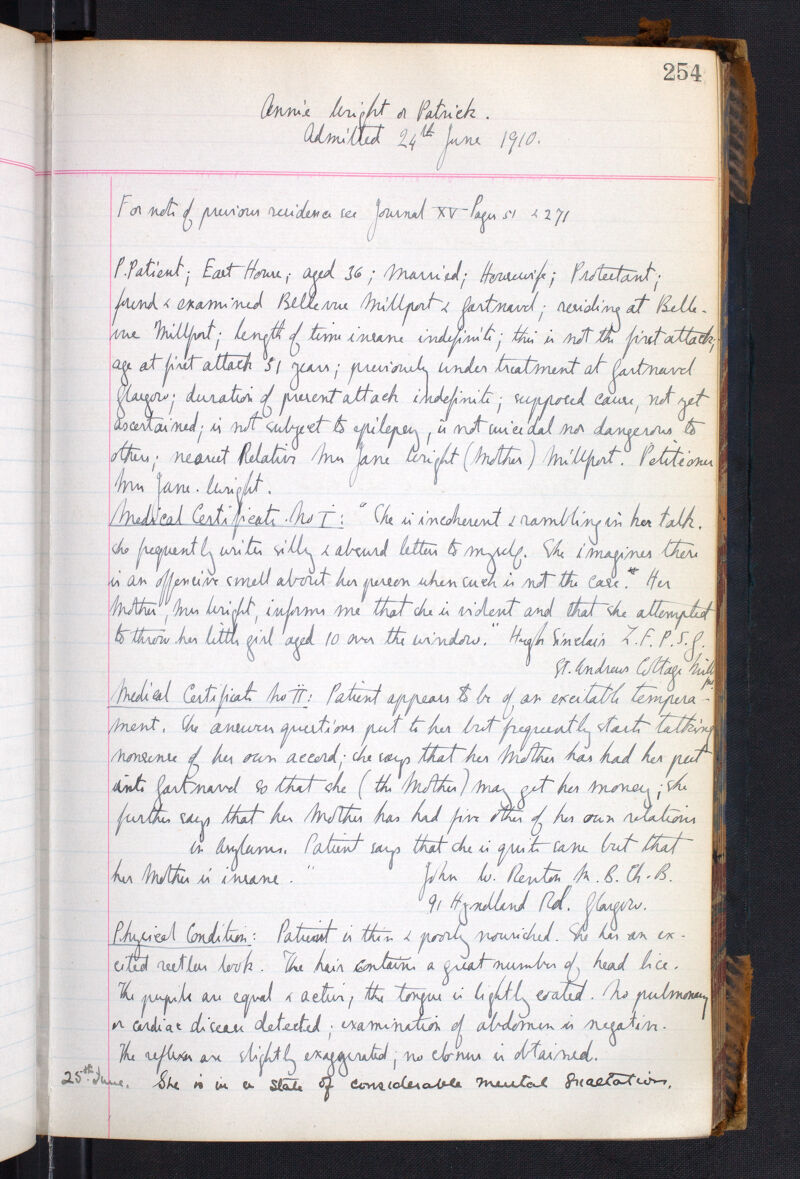 254
Annie Wright or Patrick.
Admitted 24th June 1910.
For note of previous residence see Journal XV Pages 51 & 271
P. Patient; East House; aged 36; Married; Housewife; Protestant;
found & examined Bellevue Millport & Gartnavel; residing at Belle-
vue Millport; length of time insane indefinite; this is not the first attack;
age at first attack 31 years; previously under treatment at Gartnavel
Glasgow; duration of present attack indefinite; supposed cause, not yet
ascertained; is not subject to epilepsy, is not suicidal nor dangerous to
others; nearest Relative Mrs Jane Wright (Mother) Millport. Petitioner
Mrs Jane Wright.
Medical Certificate No I: "She is incoherent & rambling in her talk.
She frequently writes silly & absurd letters to myself. She imagines there
is an offensive smell about her person when such is not the case." Her
Mother, Mrs Wright, informs me that she is violent and that she attempted
to throw her little girl aged 10 over the window." Hugh Sinclair L.F.P.S.G.
St. Andrews Cottage Millport
Medical Certificate No II: Patient appears to be of an excitable tempera-
ment. She answers questions put to her but frequently starts talking
nonsense of her own accord; she says that her Mother has had her put
into Gartnavel so that she (the Mother) may get her money; she
further says that her Mother has had five other of her own relations
in Asylums. Patient says that she is quite sane but that
her Mother is insane." John W. Renton M.B. Ch.B.
91 Hyndland Rd. Glasgow.
Physical Condition: Patient is thin & poorly nourished. She has an ex-
cited restless look. The hair contains a great number of head lice.
The pupils are equal & active; the tongue is lightly coated. No pulmonary
or cardiac disease detected; examination of abdomen is negative.
The reflexes are slightly exaggerated; no clonus is obtained.
25th June. She is in a state of considerable mental exaltation.